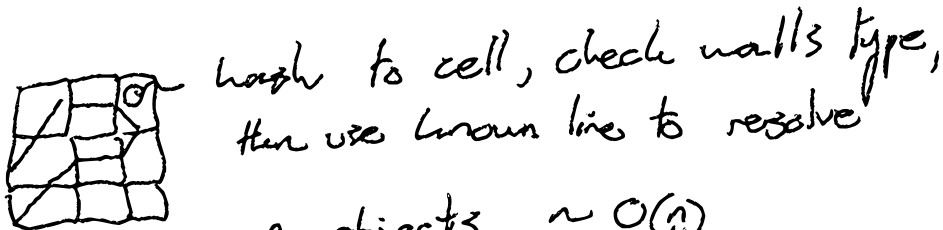 hash to cell, check walls type,
then use known line to resolve
n objects ~ O(n)